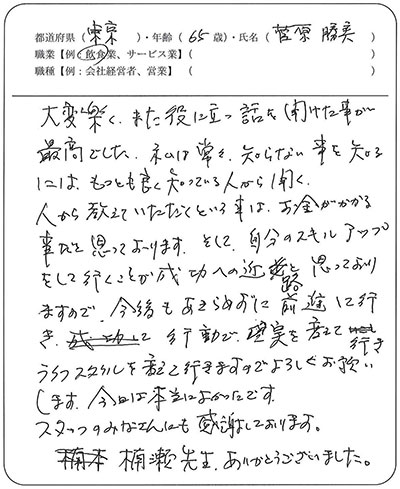 都道府県（ 東京 ）・年齢（ 65 歳）・氏名（ 菅原 勝美 ）
職業【例：飲食業、サービス業】（ ）
職種【例：会社経営者、営業】（ ）
大変楽く、また役に立つ話を聞けた事が
最高でした。私は常々、知らない事を知る
には、もっとも良く知っている人から聞く、
人から教えていただくという事は、お金がかかる
事だと思っております。そして、自分のスキルアップ
をして行くことが成功への近道路と思っており
ますので、今後もあきらめずに前進に行
き、成功して行動で、現実を変えて行き
ライフスタイルを変えて行きますのでよろしくお願い
します。今日は本当によかったです。
スタッフのみなさんにも感謝しております。
楠本 楠瀬先生、ありがとうございました。